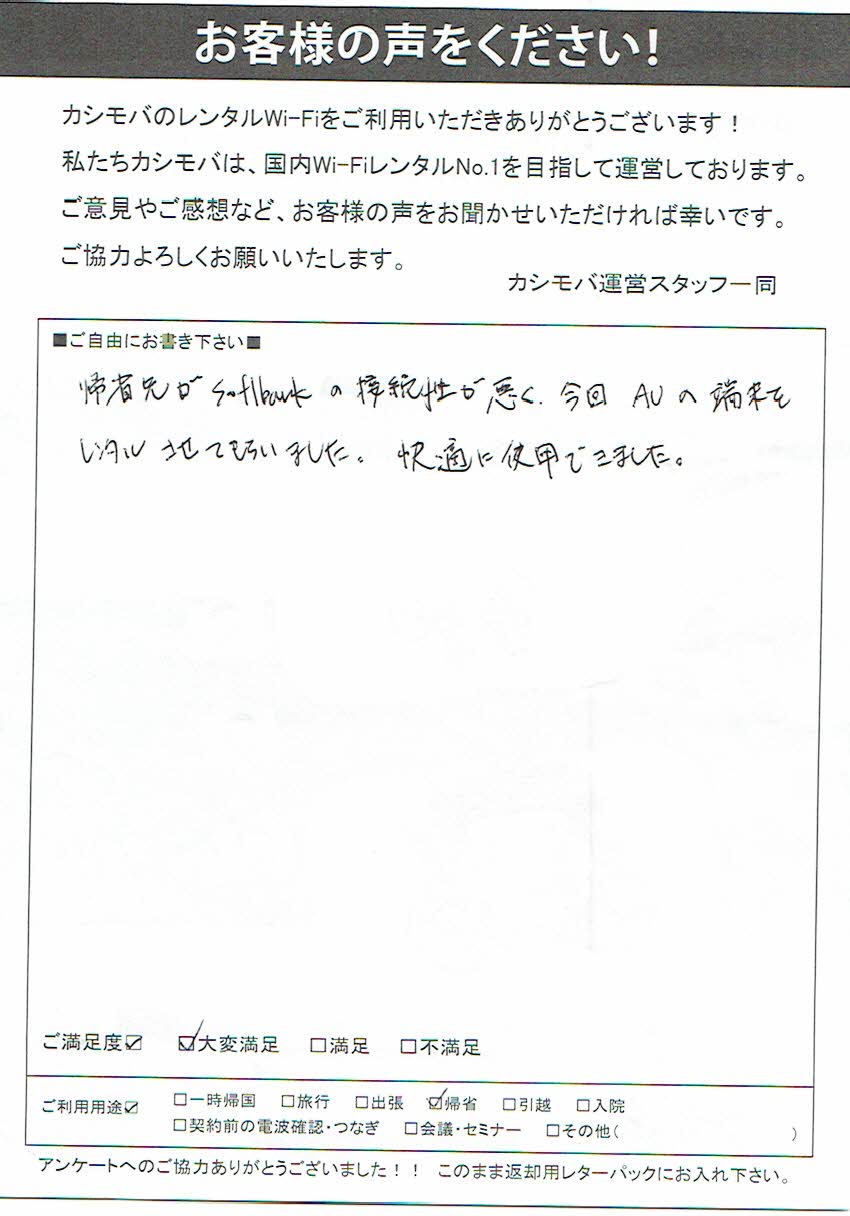 お客様の声をください!
カシモバのレンタルWi-Fiをご利用いただきありがとうございます!
私たちカシモバは、国内Wi-FiレンタルNo.1を目指して運営しております。
ご意見やご感想など、お客様の声をお聞かせいただければ幸いです。
ご協力よろしくお願いいたします。
カシモバ運営スタッフ一同
■ご自由にお書き下さい■
帰省先がSoftbankの接続性が悪く、今回AUの端末を
レンタルさせてもらいました。快適に使用できました。
ご満足度☑ ☑大変満足 □満足 □不満足
ご利用用途☑ □一時帰国 □旅行 □出張 ☑帰省 □引越 □入院
□契約前の電波確認・つなぎ □会議・セミナー □その他( )
アンケートへのご協力ありがとうございました!! このまま返却用レターパックにお入れ下さい。